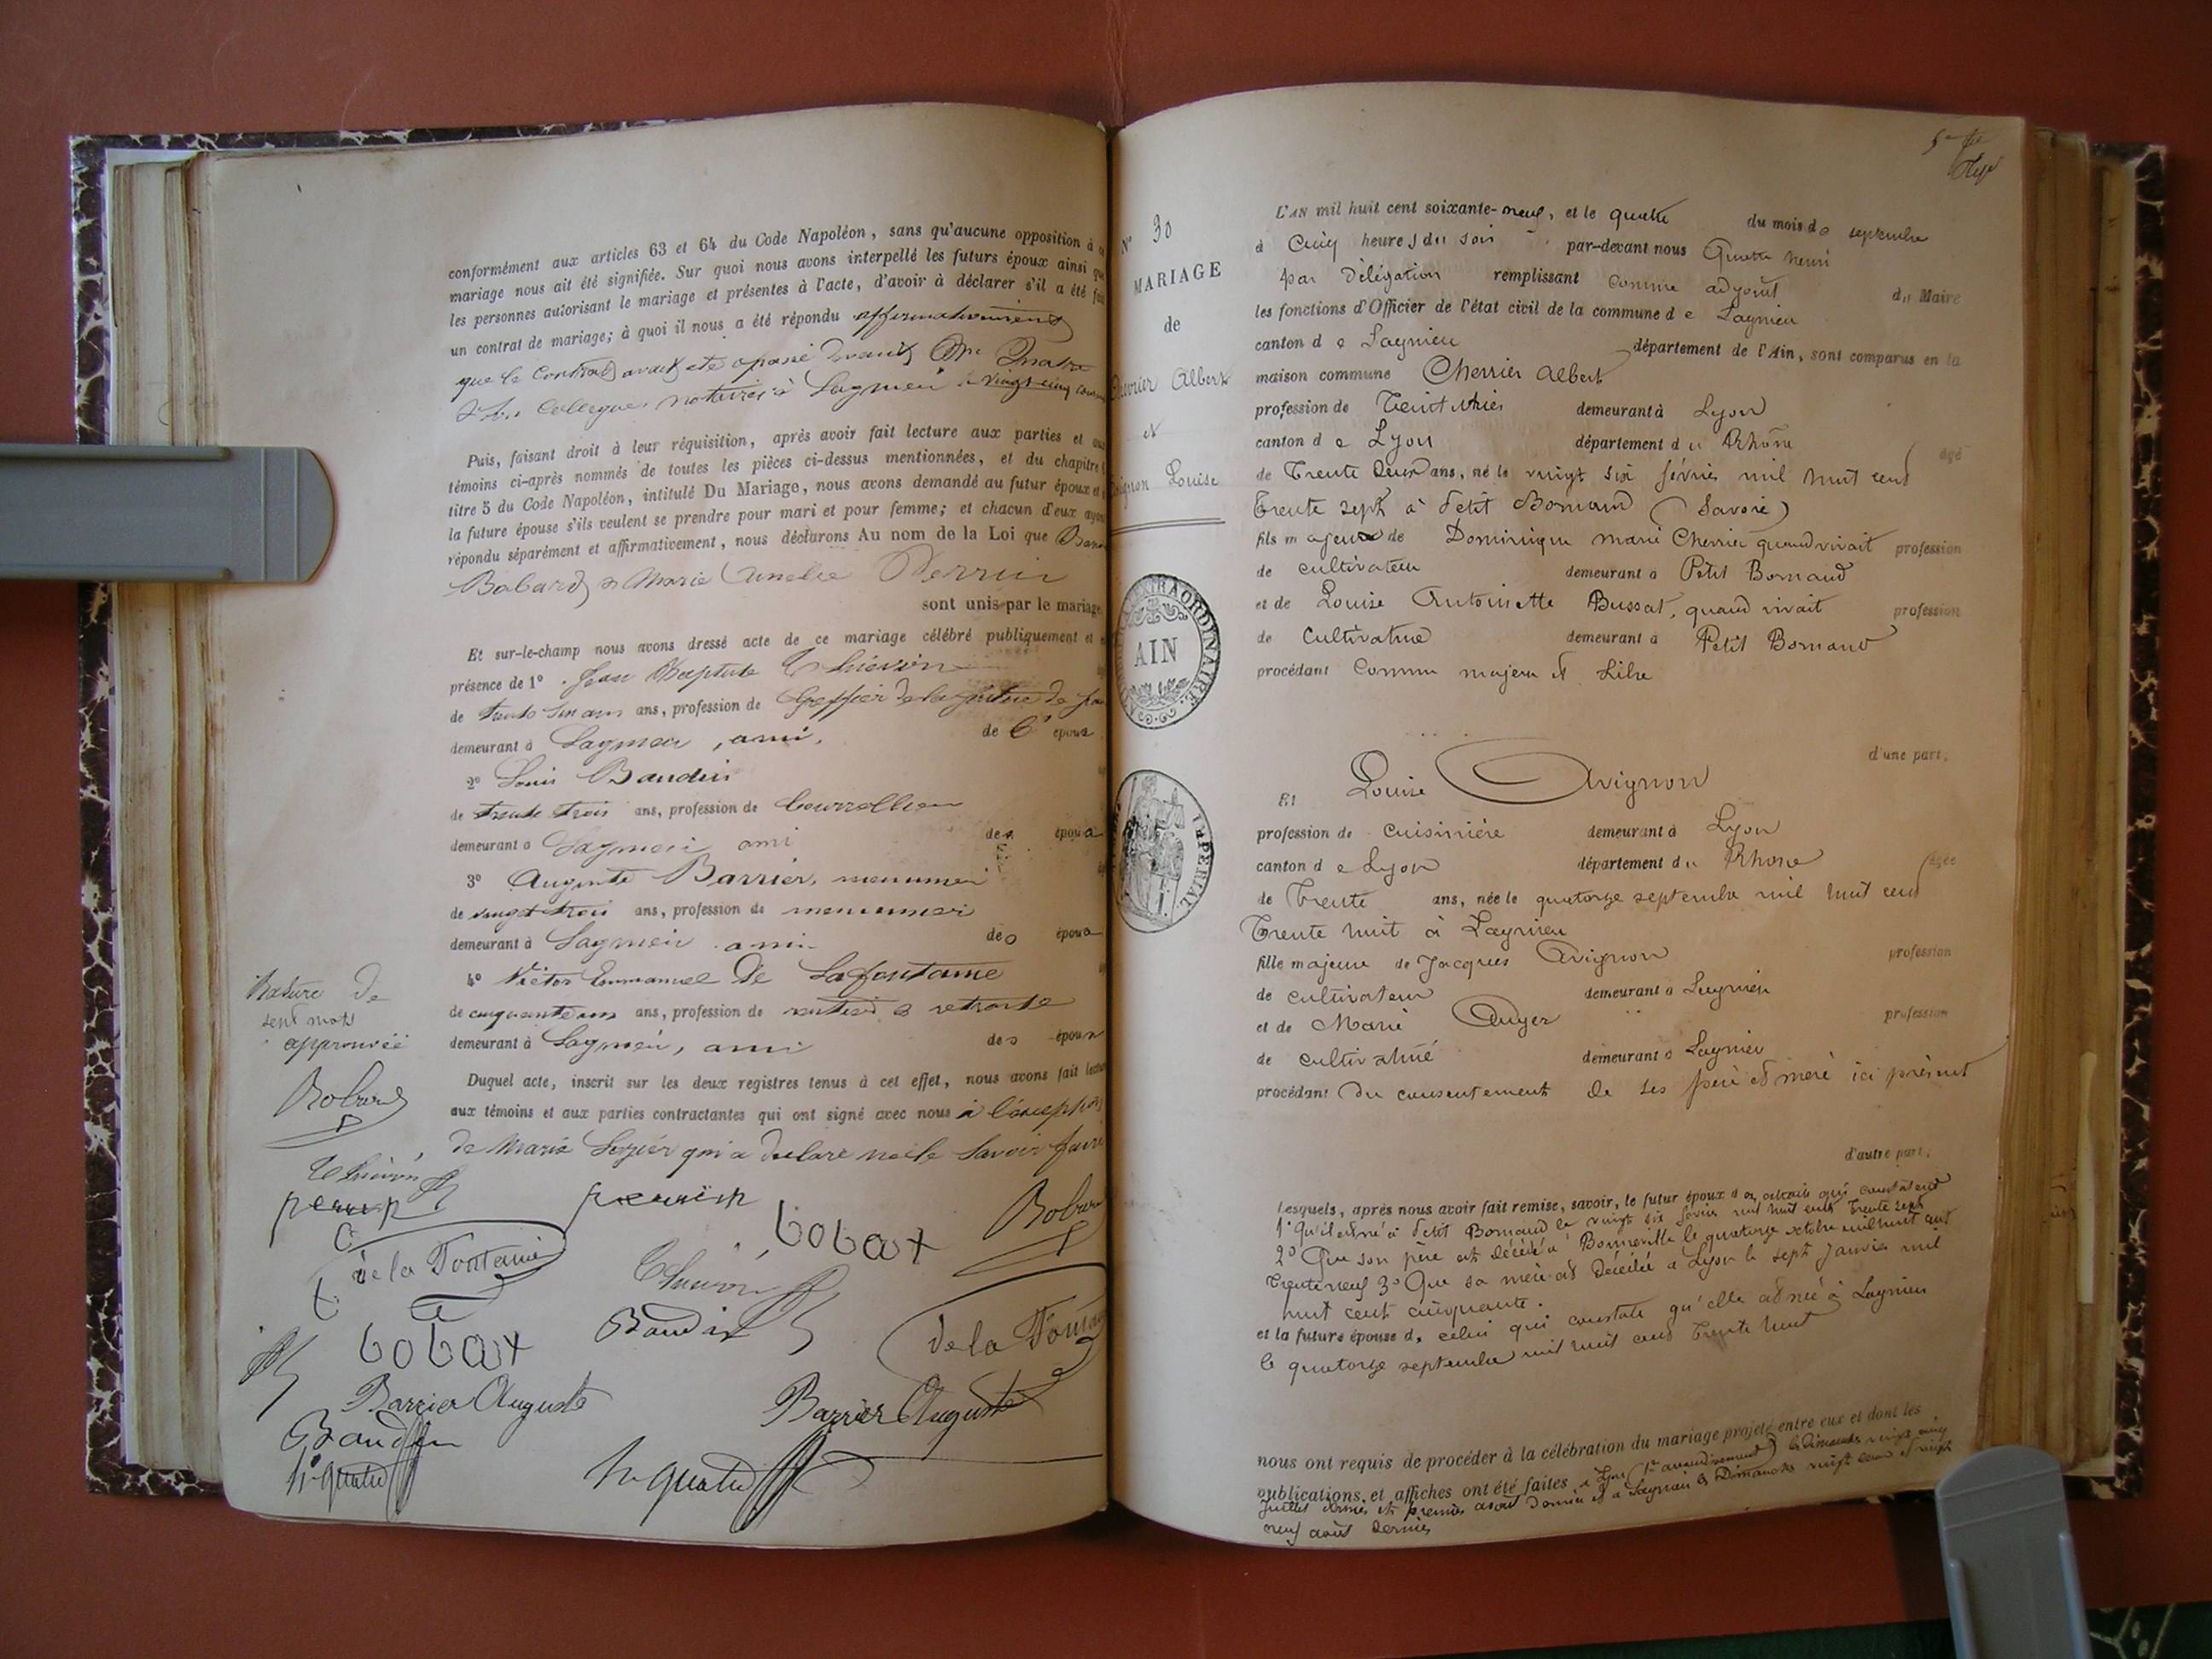 conformément aux articles 63 et 64 du Code Napoléon, sans qu'aucune opposition à
mariage nous ait été signifiée. Sur quoi nous avons interpellé les futurs époux ainsi que
les personnes autorisant le mariage et présentes à l'acte, d'avoir à déclarer s'il a été fait
un contrat de mariage; à quoi il nous a été répondu affirmativement
que le Contrat avait été passé devant
collègue notaires à Lagnieu le vingt cinq
Puis, faisant droit à leur réquisition, après avoir fait lecture aux parties et aux
témoins ci-après nommés de toutes les pièces ci-dessus mentionnées, et du chapitre
titre 5 du Code Napoléon, intitulé Du Mariage, nous avons demandé au futur époux et à
la future épouse s'ils veulent se prendre pour mari et pour femme; et chacun d'eux ayant
répondu séparément et affirmativement, nous déclarons Au nom de la Loi que
Marie Amélie Perrin
sont unis par le mariage
Et sur-le-champ nous avons dressé acte de ce mariage célébré publiquement et
présence de 1º Jean Baptiste
de ans, profession de Greffier de la justice de
demeurant à Lagnieu, ami, de l' époux
2º Louis Baudin
de trente trois ans, profession de
demeurant à Lagnieu ami de époux
3º Auguste Barrier, menuisier
de vingt trois ans, profession de menuisier
demeurant à Lagnieu ami des époux
4º Victor Emmanuel De Lafontaine
de cinquante un ans, profession de retraité
demeurant à Lagnieu, ami des époux
Duquel acte, inscrit sur les deux registres tenus à cet effet, nous avons fait lecture
aux témoins et aux parties contractantes qui ont signé avec nous à l'exception
de Marie qui a déclaré ne le savoir faire
Rature de
sept mots
approuvée
perrin
perrin
bobat
de la Fontaine
bobat
Baudin
de la Fontaine
Barrier Auguste
Barrier Auguste
Baudin
hi quatre
hi quatre
Nº 30
MARIAGE
de
Albert
et
Avignon Louise
EXTRAORDINAIRE
AIN
IMPERIAL
L'AN mil huit cent soixante-neuf, et le quatre du mois de septembre
à Cinq heures du soir par-devant nous Quatre henri
par délégation remplissant comme adjoint du Maire
les fonctions d'Officier de l'état civil de la commune de Lagnieu
canton de Lagnieu département de l'Ain, sont comparus en la
maison commune Cherrier Albert
profession de Teinturier demeurant à Lyon
canton de Lyon département du Rhône âgé
de Trente deux ans, né le vingt six février mil huit cent
Trente sept à Petit Bornand (Savoie)
fils majeur de Dominique marie Cherrier quand vivait profession
de cultivateur demeurant à Petit Bornand
et de Louise Antoinette Bussat, quand vivait profession
de Cultivatrice demeurant à Petit Bornand
procédant Comme majeur et libre
d'une part,
Et Louise Avignon
profession de cuisinière demeurant à Lyon
canton de Lyon département du Rhone âgée
de Trente ans, née le quatorze septembre mil huit cent
Trente huit à Lagnieu
fille majeure de Jacques Avignon profession
de cultivateur demeurant à Lagnieu
et de Marie Auger profession
de cultivatrice demeurant à Lagnieu
procédant du consentement de ses père et mère ici présent
d'autre part,
Lesquels, après nous avoir fait remise, savoir, le futur époux d extraits qui constatent
1º Qu'il est né à Petit Bornand le vingt six février mil huit cent trente sept
2º Que son père est décédé à Bonneville le quatorze octobre mil huit cent
trente neuf 3º Que sa mère est décédée à Lyon le sept janvier mil
huit cent cinquante.
et la future épouse d, celui qui constate qu'elle est née à Lagnieu
le quatorze septembre mil huit cent trente huit
nous ont requis de procéder à la célébration du mariage projeté entre eux et dont les
publications et affiches ont été faites, à Lyon (1er arrondissement) les Dimanches vingt cinq
juillet dernier et premier août dernier et à Lagnieu les Dimanches vingt deux et vingt
neuf août dernier